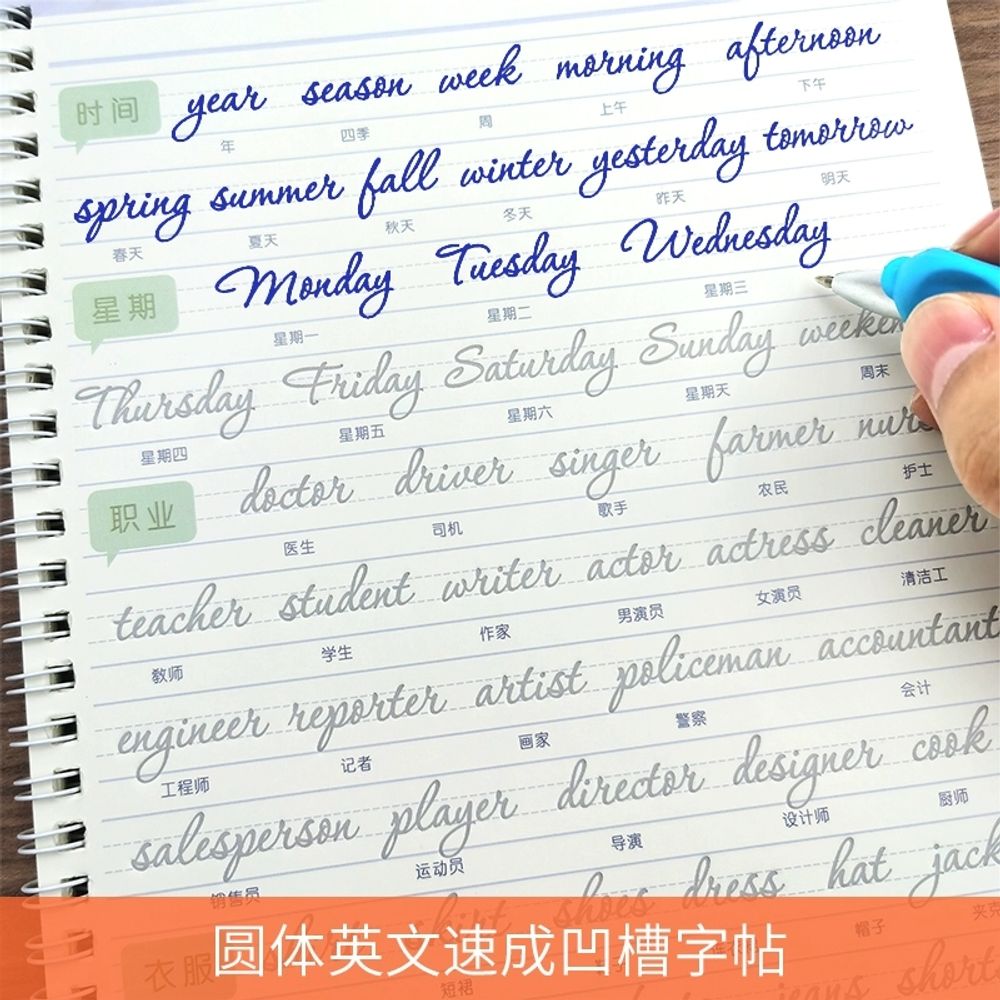 时间 year season week morning afternoon
年 四季 周 上午 下午
spring summer fall winter yesterday tomorrow
春天 夏天 秋天 冬天 昨天 明天
星期 Monday Tuesday Wednesday
星期一 星期二 星期三
Thursday Friday Saturday Sunday weeken
星期四 星期五 星期六 星期天 周末
职业 doctor driver singer farmer nurs
医生 司机 歌手 农民 护士
teacher student writer actor actress cleaner
教师 学生 作家 男演员 女演员 清洁工
engineer reporter artist policeman accountant
工程师 记者 画家 警察 会计
salesperson player director designer cook
销售员 运动员 导演 设计师 厨师
shirt shoes dress hat jack
帽子 夹克
衣服 jeans short
短裙
圆体英文速成凹槽字帖